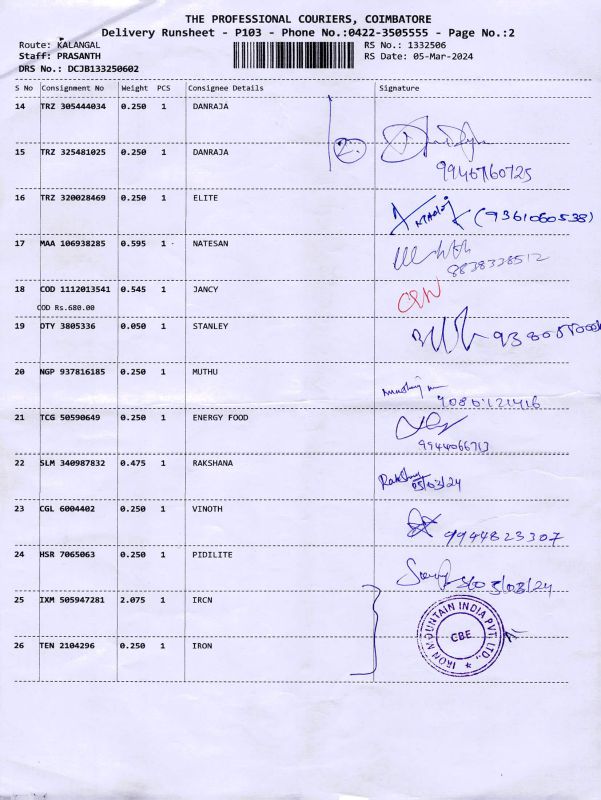 THE PROFESSIONAL COURIERS, COIMBATORE
Delivery Runsheet - P103 - Phone No.:0422-3505555 - Page No.:2
Route: KALANGAL RS No.: 1332506
Staff: PRASANTH RS Date: 05-Mar-2024
DRS No.: DCJB133250602
S No Consignment No Weight PCS Consignee Details Signature
14 TRZ 305444034 0.250 1 DANRAJA
2.
15 TRZ 325481025 0.250 1 DANRAJA
16 TRZ 320028469 0.250 1 ELITE
(9361060538)
17 MAA 106938285 0.595 1 NATESAN
8838338512
18 COD 1112013541 0.545 1 JANCY
COD Rs.680.00
19 DTY 3805336 0.050 1 STANLEY
20 NGP 937816185 0.250 1 MUTHU
21 TCG 50590649 0.250 1 ENERGY FOOD
9944066713
22 SLM 340987832 0.475 1 RAKSHANA
05/03/24
23 CGL 6004402 0.250 1 VINOTH
9944823307
24 HSR 7065063 0.250 1 PIDILITE
03/24
25 IXM 505947281 2.075 1 IRCN
IRON MOUNTAIN INDIA PVT. LTD.,
CBE
26 TEN 2104296 0.250 1 IRON